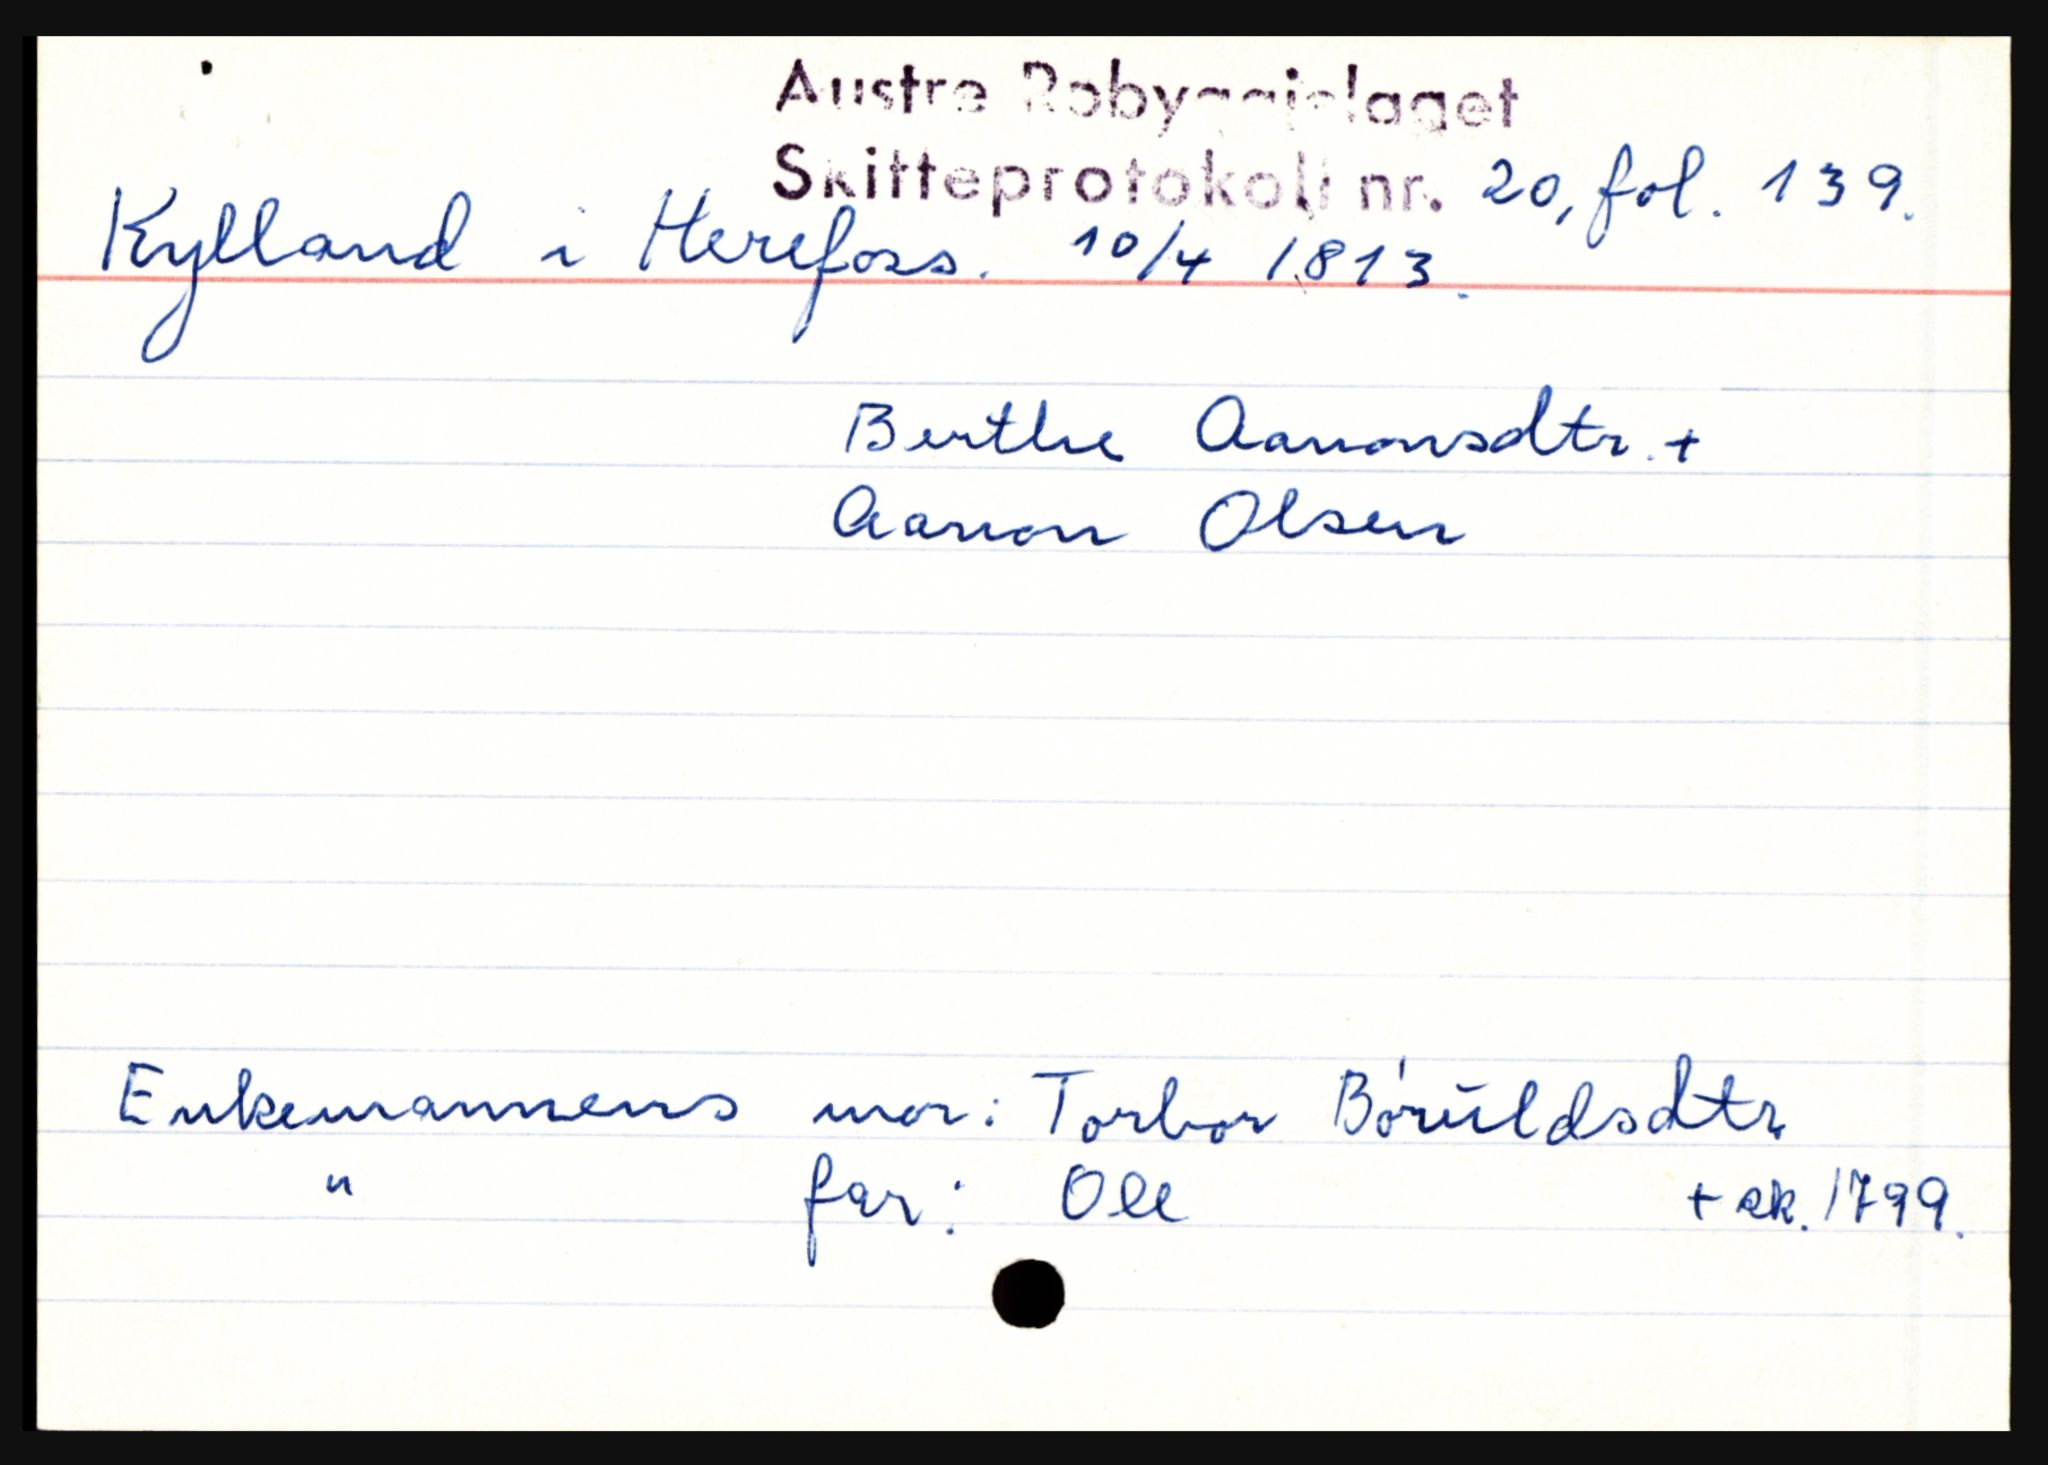 Austre Robyggjelaget
Skifteprotokoll nr. 20, fol. 139.
Kylland i Herefoss. 10/4 1813.
Berthe Aanonsdtr. +
Aanon Olsen
Enkemannens mor: Torbor Bóruldsdtr
" far: Ole + sk. 1799.